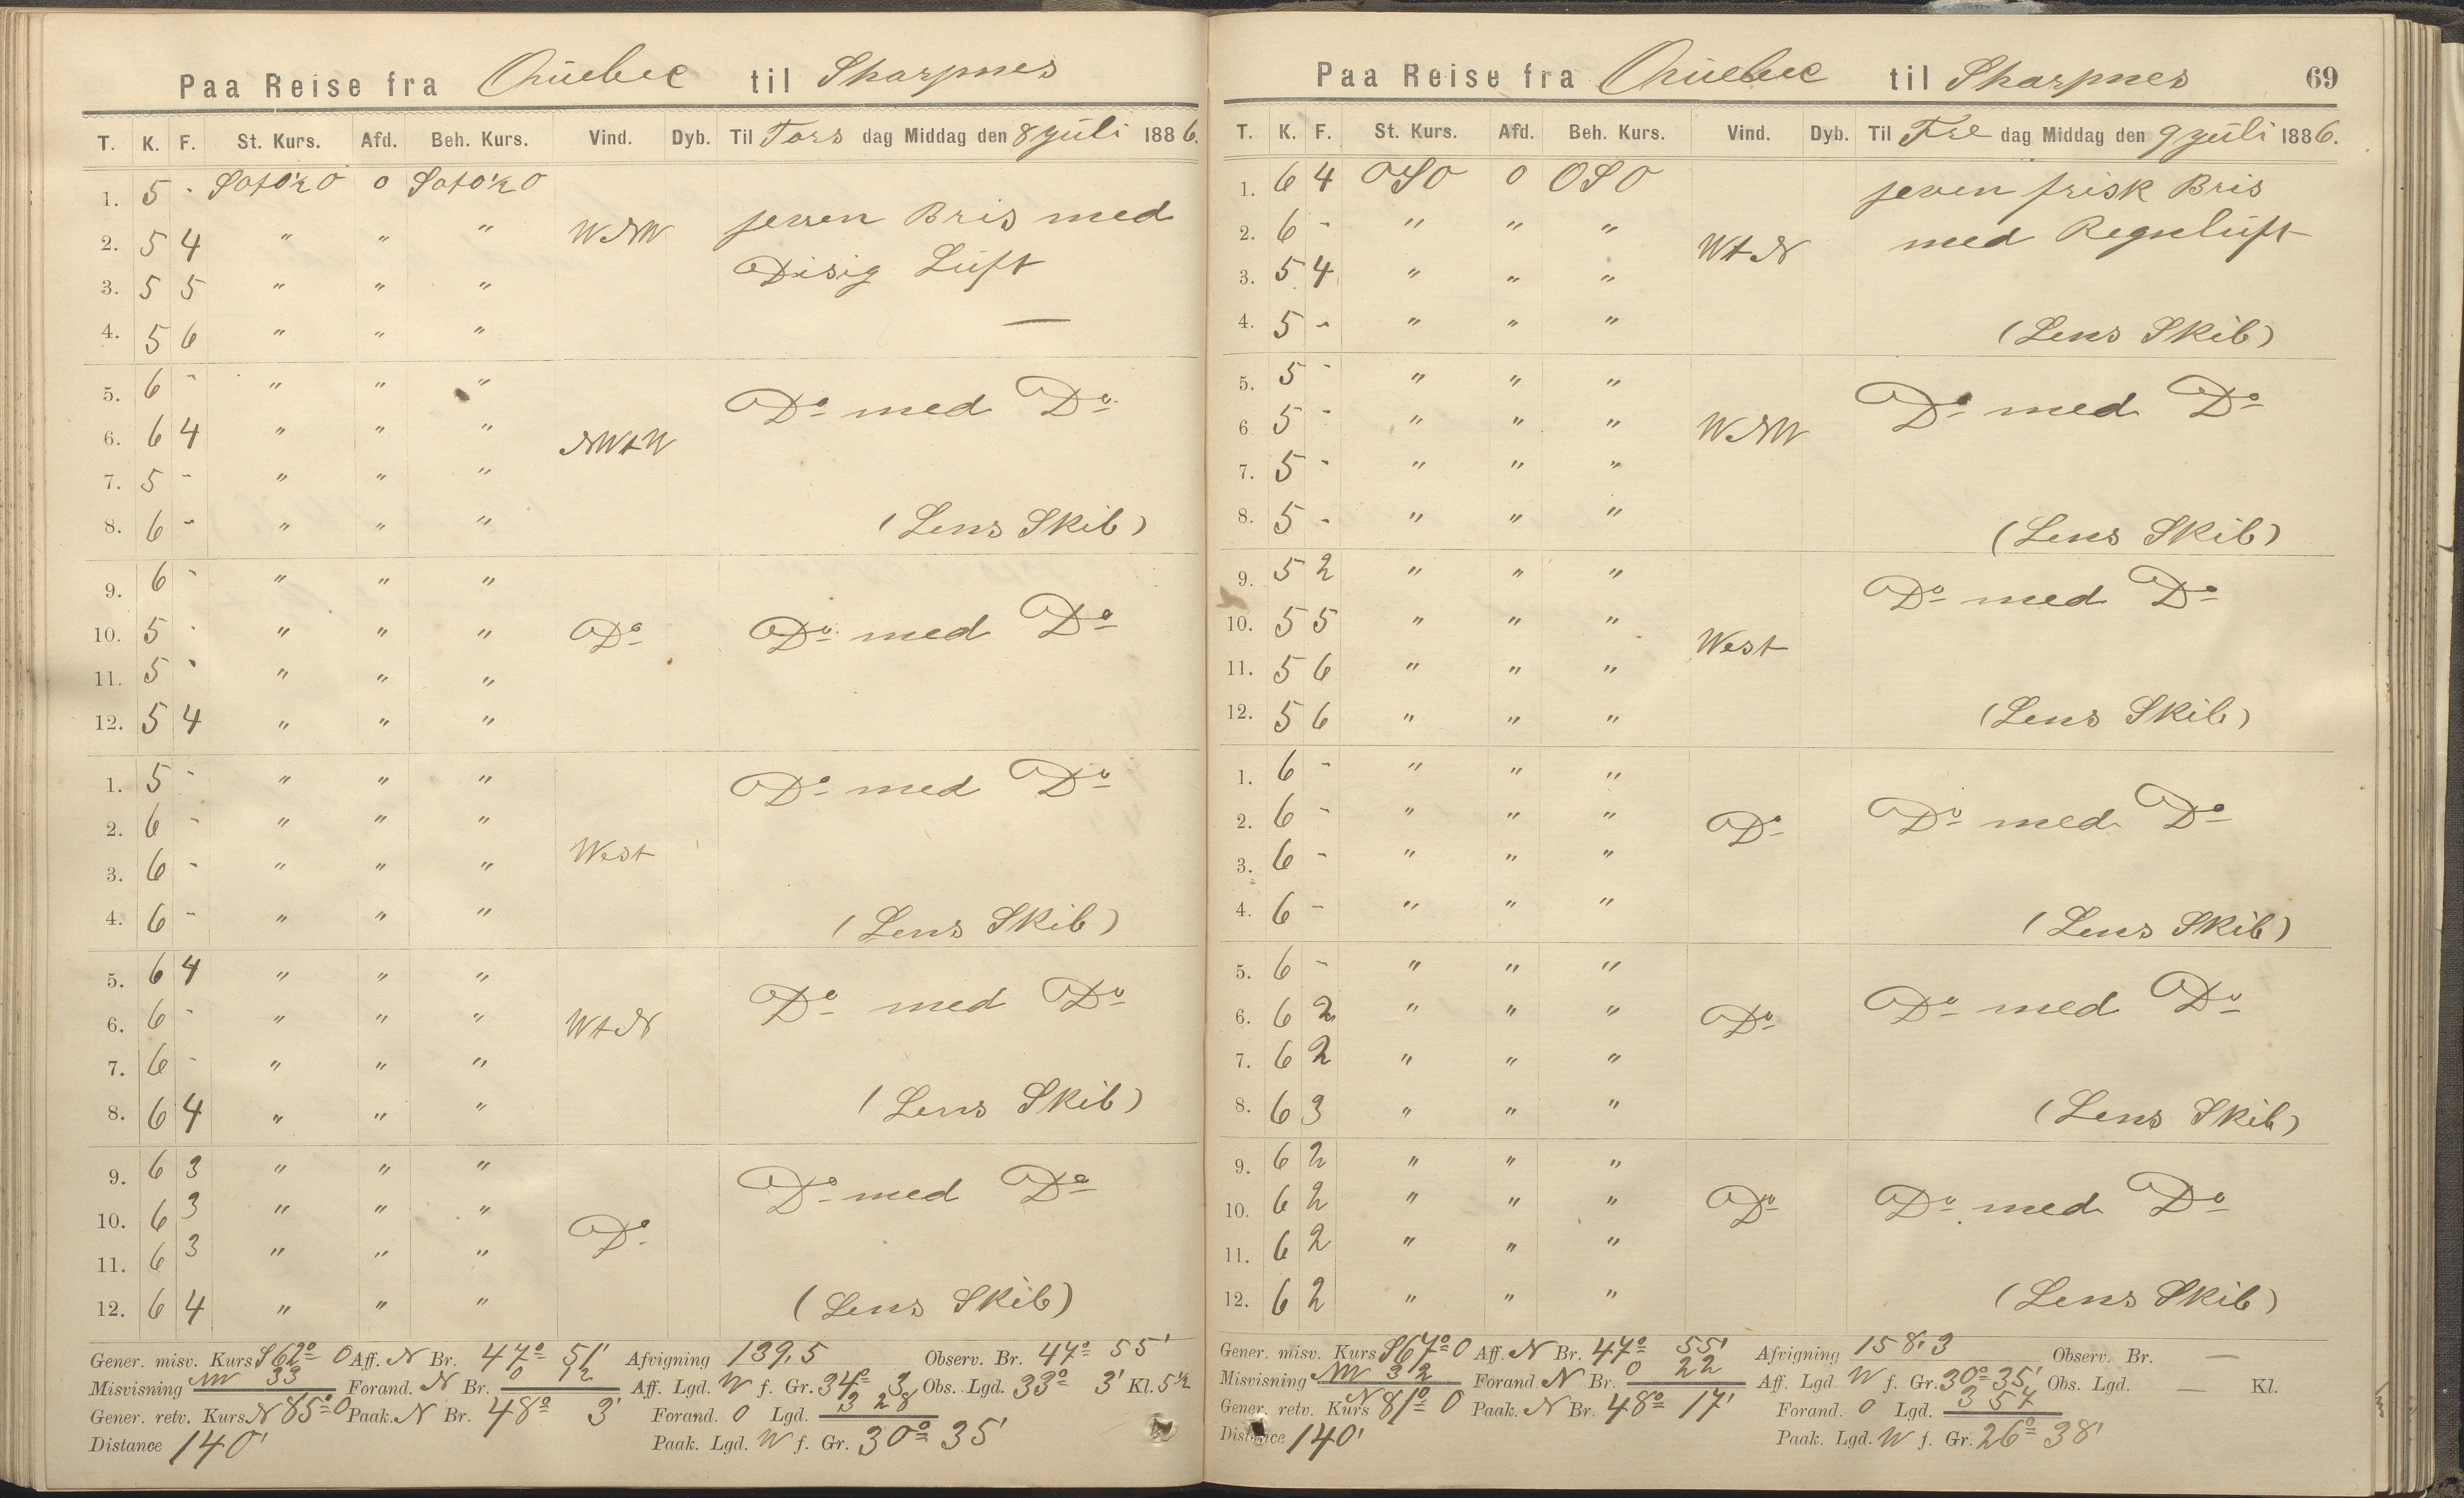 Paa Reise fra Quebec til Sharpnes
T. K. F. St. Kurs. Afd. Beh. Kurs. Vind. Dyb. Til Tors dag Middag den 8 juli 1886.
1. 5 - SOtO½O 0 SOtO½O
jevn Bris med
2. 5 4 " " " WNW
Disig Luft
3. 5 5 " " "
4. 5 6 " " " —
5. 6 - " " "
Do med Do
6. 6 4 " " " NWtW
7. 5 - " " "
8. 6 - " " " (Lens Skib)
9. 6 - " " "
10. 5 - " " " Do Do med Do
11. 5 - " " "
12. 5 4 " " "
1. 5 - " " " Do med Do
2. 6 - " " "
3. 6 - " " " West
4. 6 - " " " (Lens Skib)
5. 6 4 " " "
Do med Do
6. 6 - " " " WtN
7. 6 - " " "
8. 6 4 " " " (Lens Skib)
9. 6 3 " " "
Do med Do
10. 6 3 " " " Do
11. 6 3 " " "
12. 6 4 " " " (Lens Skib)
Gener. misv. Kurs S 62° O Aff. N Br. 47° 51' Afvigning 139,5 Observ. Br. 47° 55'
Misvisning NW 33 Forand. N Br. 0 12 Aff. Lgd. W f. Gr. 34° 3 Obs. Lgd. 33° 3' Kl. 5½
Gener. retv. Kurs N 85° O Paak. N Br. 48° 3' Forand. O Lgd. 3 28
Distance 140' Paak. Lgd. W f. Gr. 30° 35'
Paa Reise fra Quebec til Sharpnes 69
T. K. F. St. Kurs. Afd. Beh. Kurs. Vind. Dyb. Til Fre dag Middag den 9 juli 1886.
1. 6 4 OSO 0 OSO jeven frisk Bris
2. 6 - " " " WtN med Regnluft
3. 5 4 " " "
4. 5 - " " " (Lens Skib)
5. 5 - " " " Do med Do
6 5 - " " " WNW
7. 5 - " " "
8. 5 - " " " (Lens Skib)
9. 5 2 " " " Do med Do
10. 5 5 " " " West
11. 5 6 " " "
12. 5 6 " " " (Lens Skib)
1. 6 - " " "
2. 6 - " " " Do Do med Do
3. 6 - " " "
4. 6 - " " " (Lens Skib)
5. 6 - " " "
6. 6 2 " " " Do Do med Do
7. 6 2 " " "
8. 6 3 " " " (Lens Skib)
9. 6 2 " " "
10. 6 2 " " " Do Do med Do
11. 6 2 " " "
12. 6 2 " " " (Lens Skib)
Gener. misv. Kurs S 67° O Aff. N Br. 47° 55' Afvigning 158,3 Observ. Br. —
Misvisning NW 32 Forand. N Br. 0 22 Aff. Lgd. W f. Gr. 30° 35' Obs. Lgd. — Kl.
Gener. retv. Kurs N 81° O Paak. N Br. 48° 17' Forand. O Lgd. 3 57
Distance 140' Paak. Lgd. W f. Gr. 26° 38'